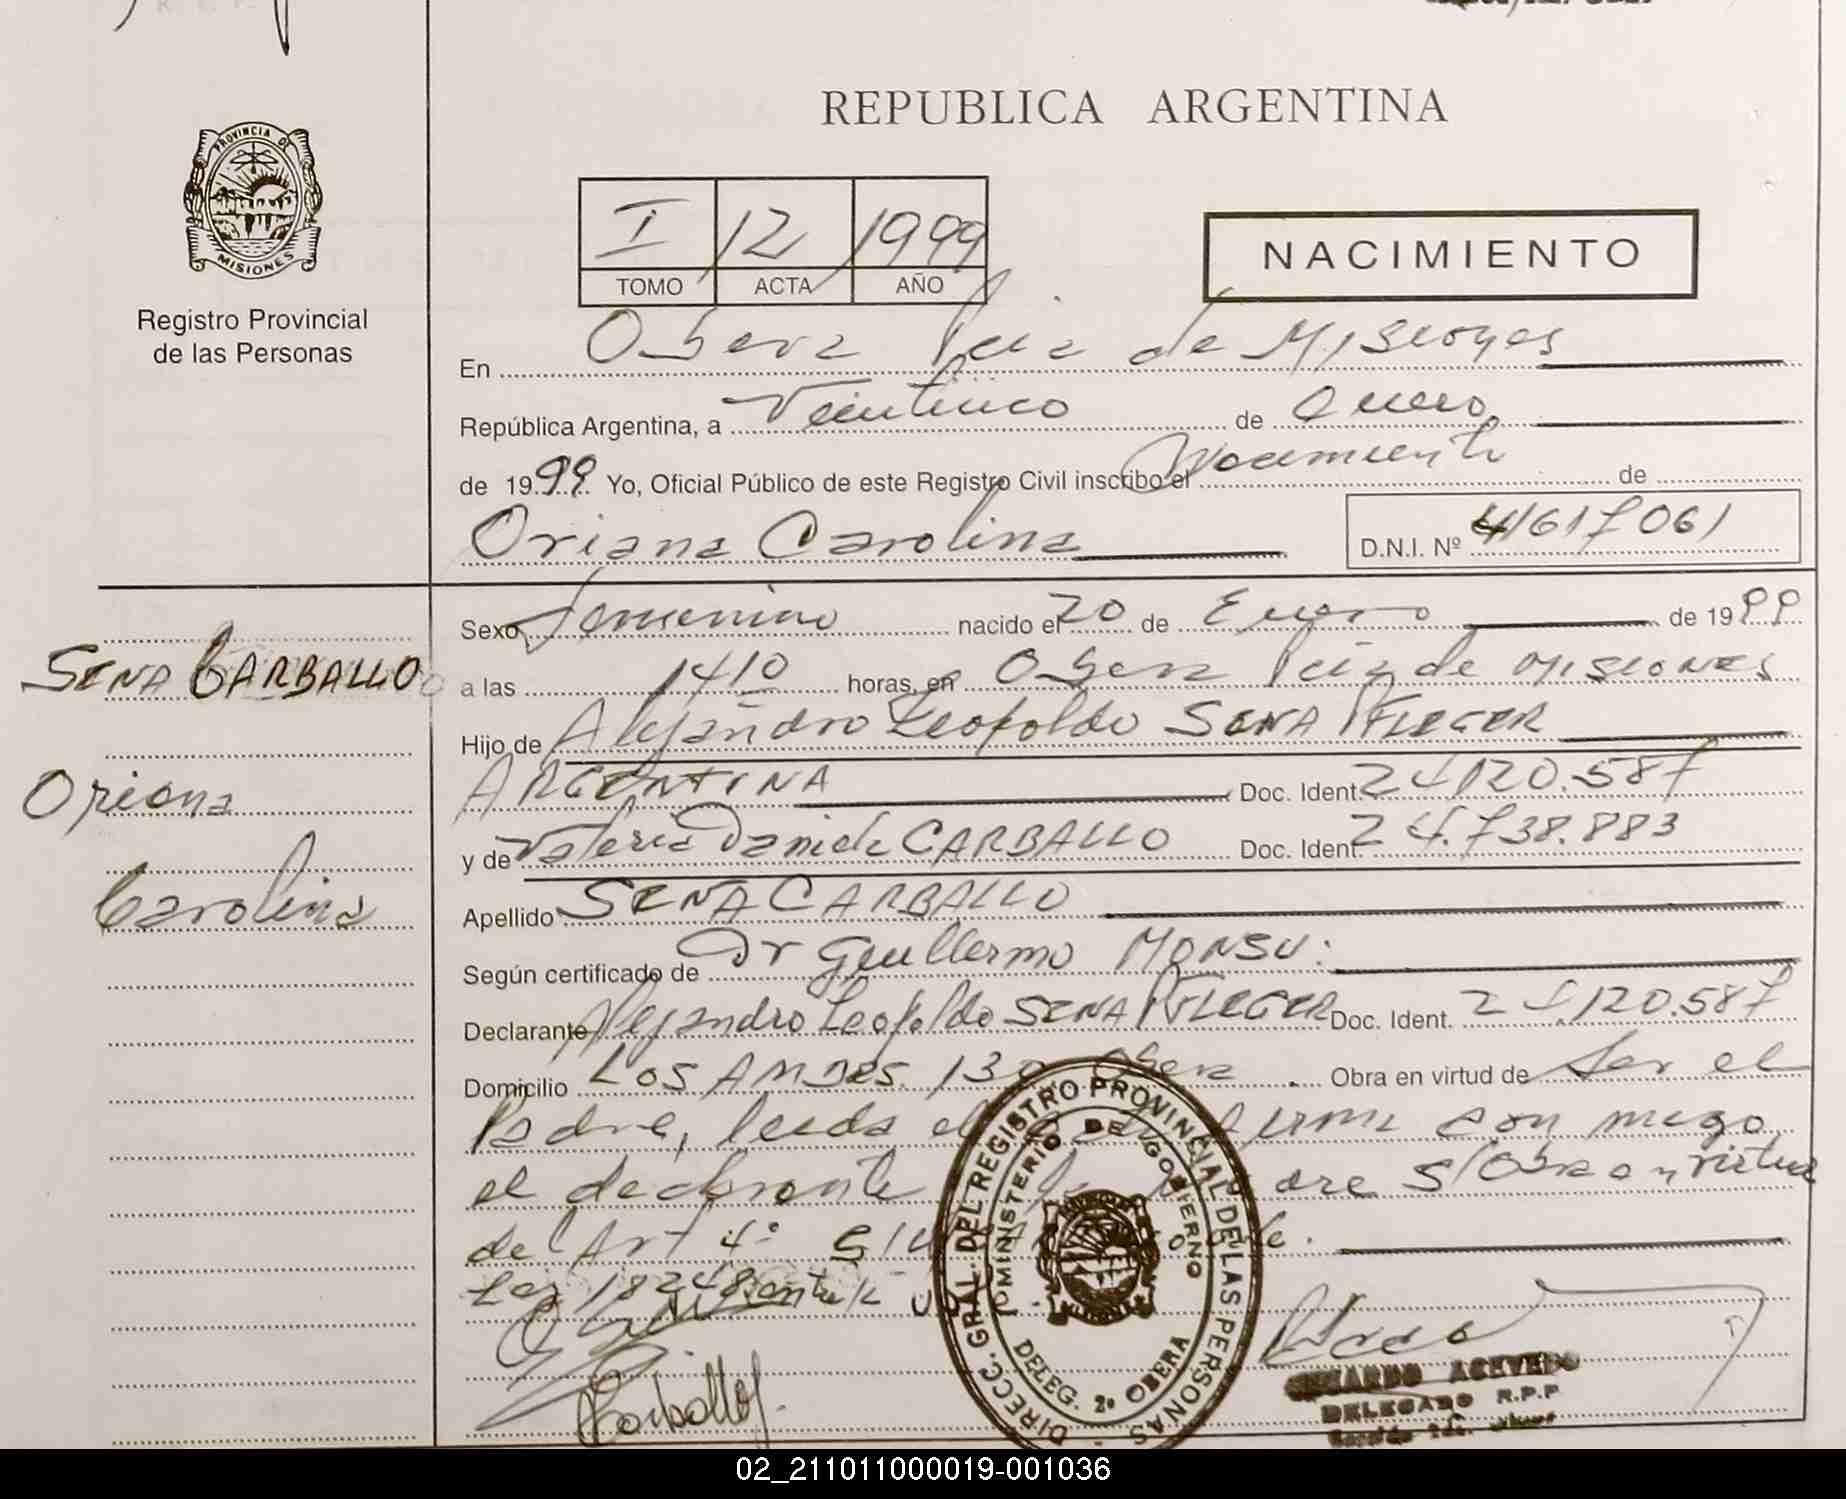 REPUBLICA ARGENTINA
PROVINCIA DE
MISIONES
Registro Provincial
de las Personas
I 12 1999
TOMO ACTA AÑO
NACIMIENTO
En Obera Pcia de Misiones
República Argentina, a Veinticinco de Enero
de 1999 Yo, Oficial Público de este Registro Civil inscribo el Nacimiento de
Oriana Carolina
D.N.I. Nº 41617061
SENA CARBALLO
Oriana
Carolina
Sexo femenino nacido el 20 de Enero de 1999
a las 1410 horas, en Obera Pcia de MISIONES
Hijo de Alejandro Leopoldo SENA PFLEGER
ARGENTINA Doc. Ident. 24120.587
y de Valeria Daniela CARBALLO Doc. Ident. 24.738.883
Apellido SENA CARBALLO
Según certificado de Dr Guillermo MONSU
Declarante Alejandro Leopoldo SENA PFLEGER Doc. Ident. 24.120.587
Domicilio LOS ANDES 130 Obera Obra en virtud de Ser el
Padre, leida el firma con migo
el declarante S/Obra en virtud
del Art 4°
Ley 18248
Carballo
DIRECC. GRAL. DEL REGISTRO PROVINCIAL DE LAS PERSONAS
MINISTERIO DE GOBIERNO
DELEG. 2º OBERA
EDUARDO ACEVEDO
DELEGADO R.P.P
02_211011000019-001036